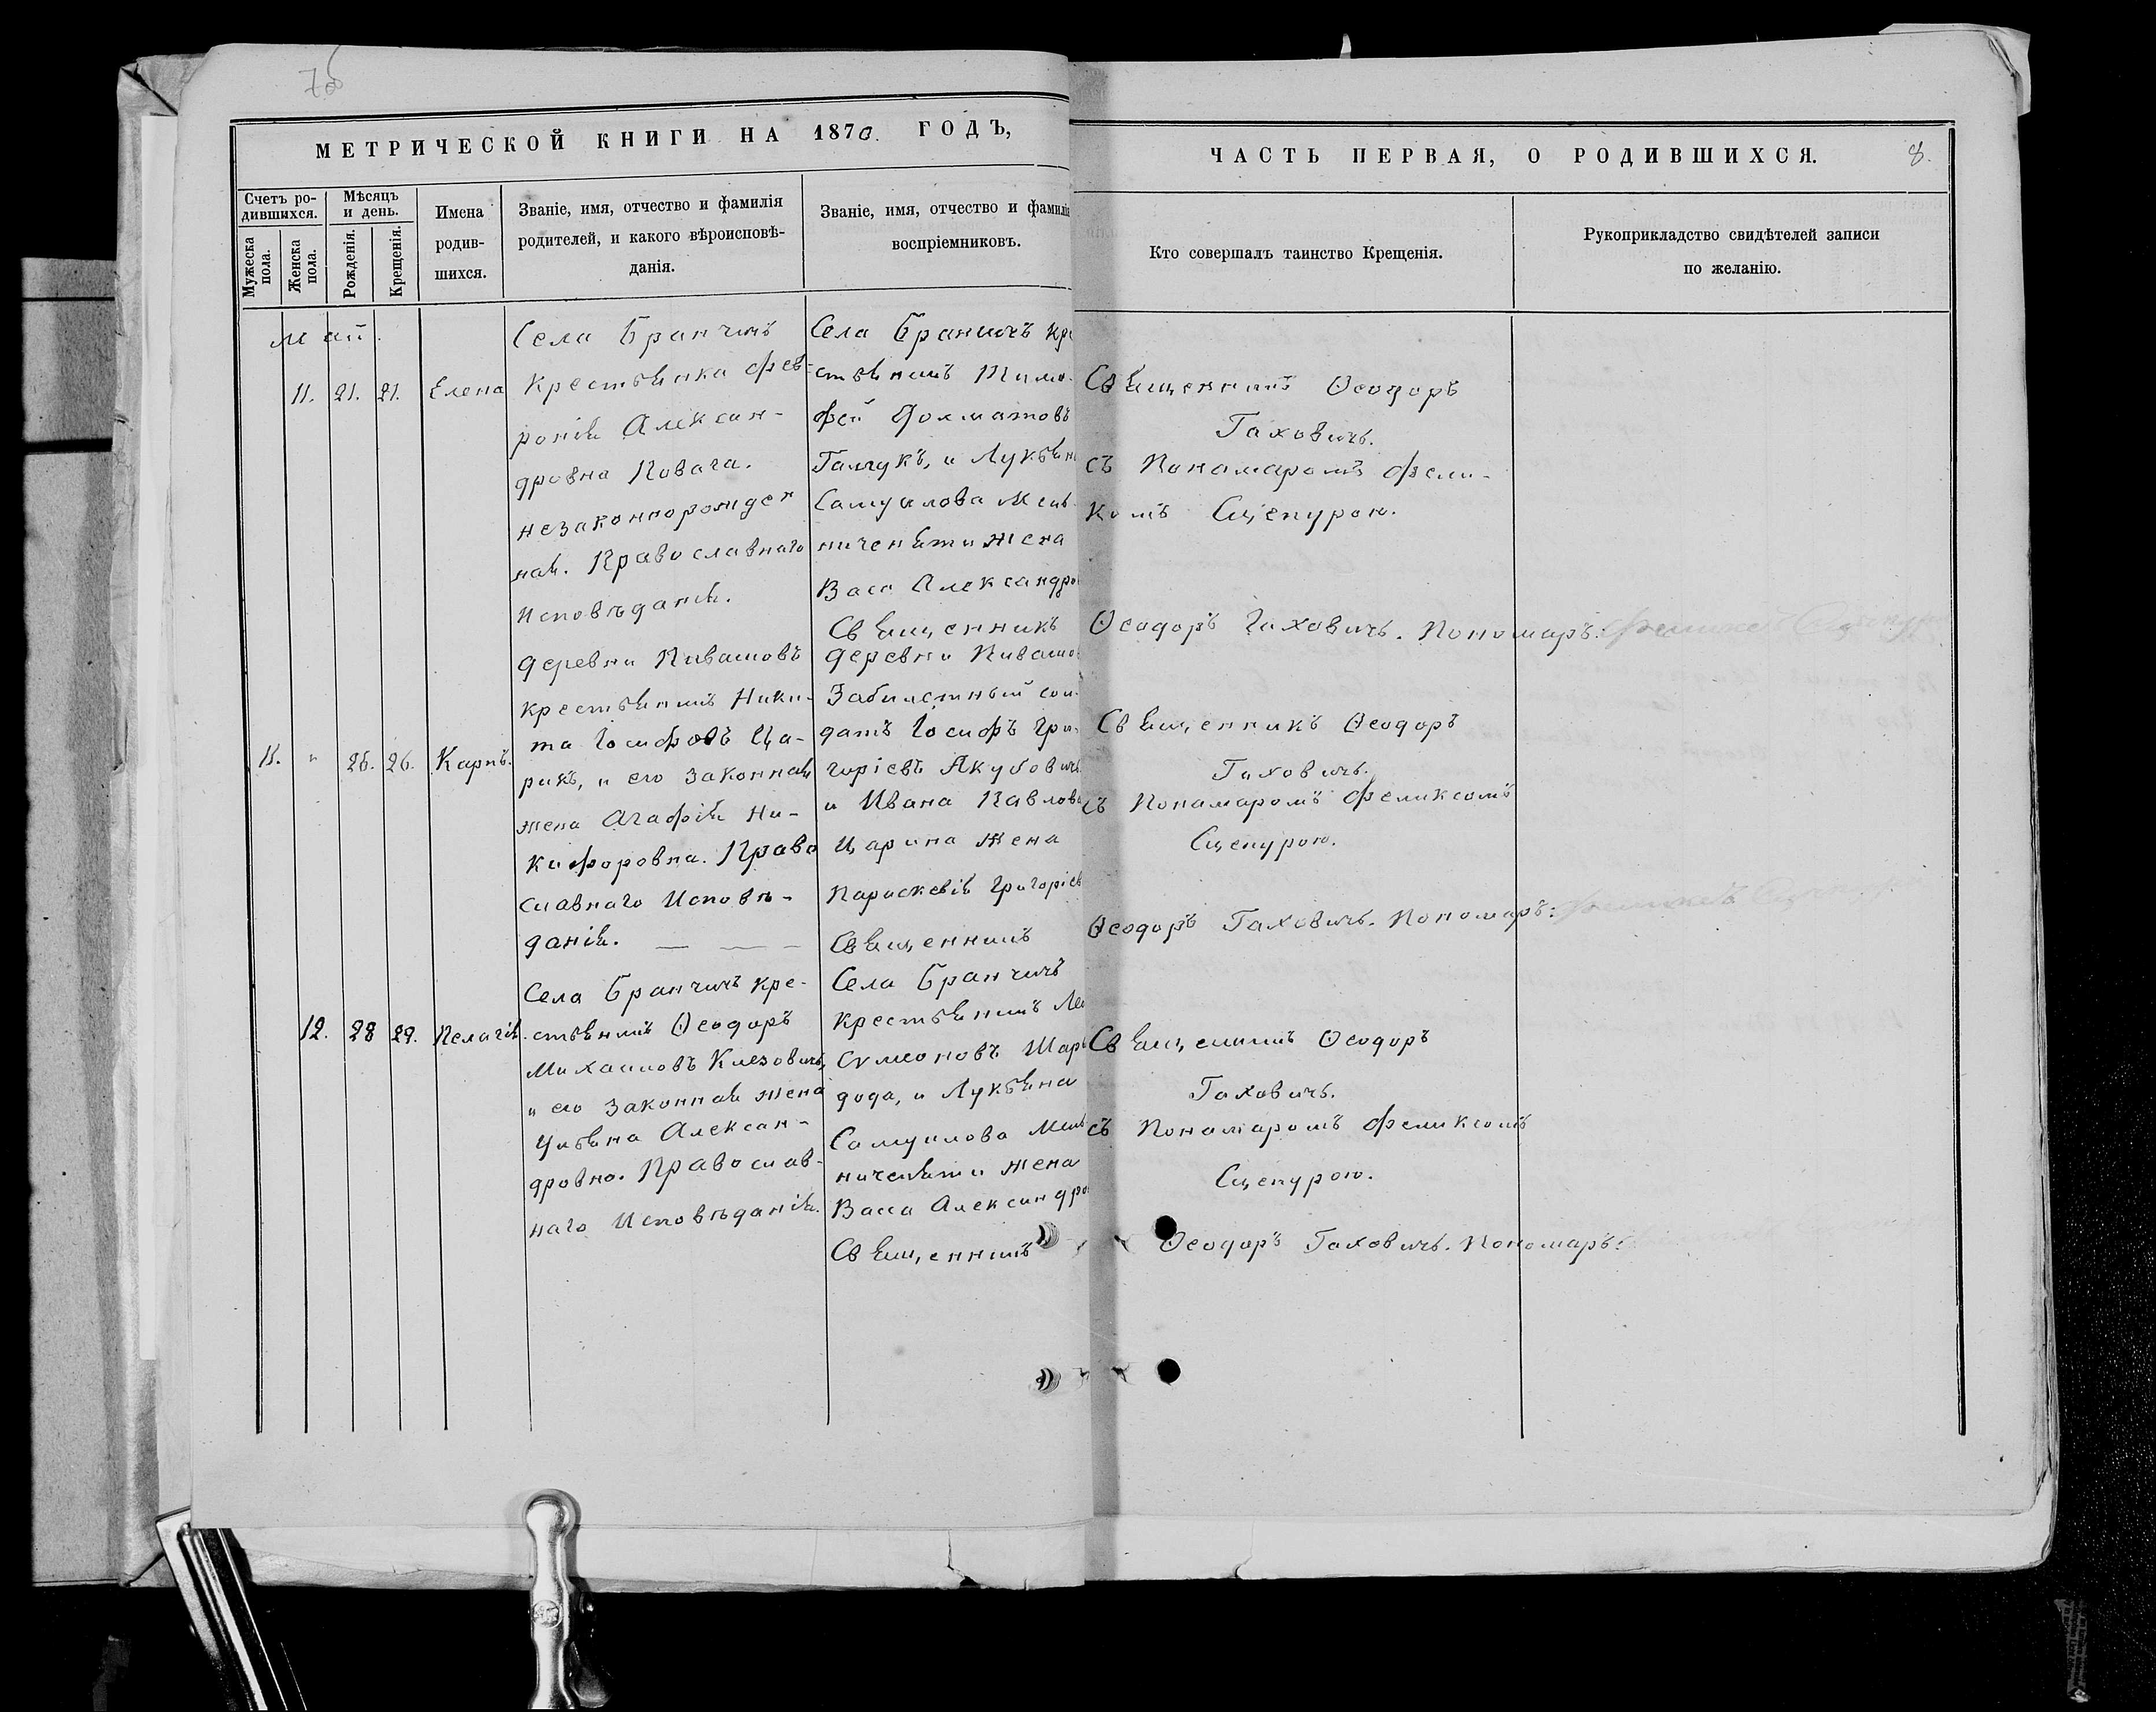 МЕТРИЧЕСКОЙ КНИГИ НА 1870. ГОДЪ,
ЧАСТЬ ПЕРВАЯ, О РОДИВШИХСЯ.
8.
Счетъ ро-
дившихся.
Мужеска
пола.
Женска
пола.
Мѣсяцъ
и день.
Рожденія.
Крещенія.
Имена
родив-
шихся.
Званіе, имя, отчество и фамилія
родителей, и какого вѣроисповѣ-
данія.
Званіе, имя, отчество и фамилія
воспріемниковъ.
Кто совершалъ таинство Крещенія.
Рукоприкладство свидѣтелей записи
по желанію.
Май.
11. 21. 21. Елена
Села Бранчичъ
Крестьянка Фев-
ронія Алексан-
дровна Ковага.
незаконнорожден
ная. Православнаго
Исповѣданія.
Села Браничъ кре
стьянинъ Тимо-
фей Долматовъ
Галчукъ, и Лукьян
Самуилова Мель
ниченяти жена
Васс Александро
Священникъ
Священникъ Ѳеодоръ
Гаховичъ.
съ Пономаромъ Фели-
комъ Сцепурою.
Ѳеодоръ Гаховичъ. Пономаръ:
11. " 26. 26. Карпъ.
деревни Кивашовъ
крестьянинъ Ники-
та Іосифовъ Ца-
рикъ, и его законная
жена Агафія Ни-
кифоровна. Право
славнаго Исповѣ-
данія.
деревни Кивашов
Забилетный сол-
датъ Іосифъ Гри-
горіевъ Якубовичъ
и Ивана Павлова
Царина жена
Параскевія Григоріев
Священникъ
Священникъ Ѳеодоръ
Гаховичъ.
съ Пономаромъ Феликсомъ
Сцепурою.
Ѳеодоръ Гаховичъ. Пономаръ:
12. 28 29. Пелагія.
Села Бранчичъ кре-
стьянинъ Ѳеодоръ
Михаиловъ Клезовичъ,
и его законная жена
Ульяна Алексан-
дровна. Православ-
наго Исповѣданія.
Села Бранчичъ
крестьянинъ
Сумеоновъ Шар
дода, и Лукьяна
Самуилова Мель
ниченяти жена
Васса Александро
Священникъ
Священникъ Ѳеодоръ
Гаховичъ.
съ Пономаромъ Феликсомъ
Сцепурою.
Ѳеодоръ Гаховичъ. Пономаръ: